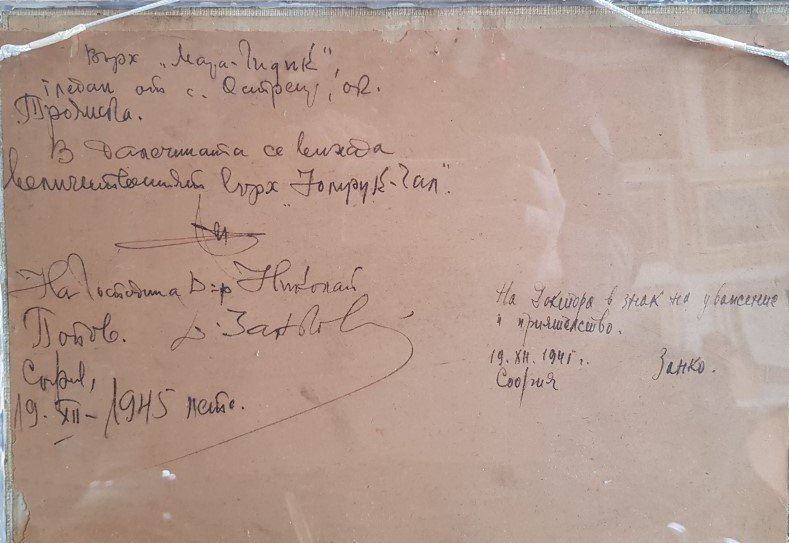 Върх „Маза-Гидик",
гледан от с. Острец, ок.
Троянска.
В далечината се вижда
величественият връх „Юмрук-Чал".
На Господина Д-р Николай
Попов.
София,
19. XII - 1945 лето.
На Доктора в знак на уважение
и приятелство.
19. XII. 1945 г.
София Занко.